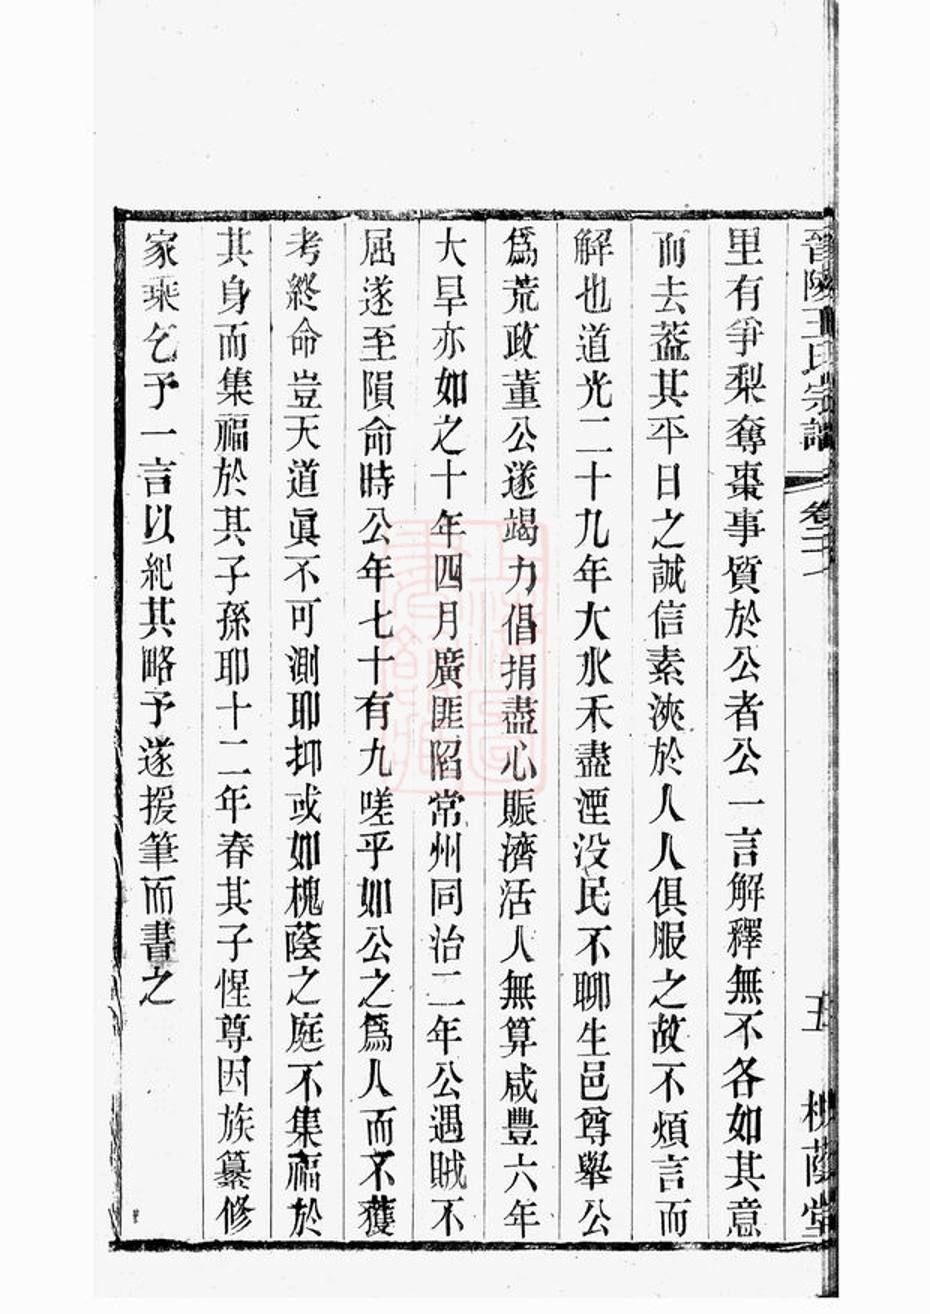 晉陵王氏宗譜
卷二
五
槐蔭堂
里有爭梨奪棗事質於公者公一言解釋無不各如其意
而去葢其平日之誠信素浹於人人俱服之故不煩言而
解也道光二十九年大水禾盡湮没民不聊生邑尊舉公
爲荒政董公遂竭力倡捐盡心賑濟活人無算咸豐六年
大旱亦如之十年四月廣匪陷常州同治二年公遇賊不
屈遂至隕命時公年七十有九嗟乎如公之爲人而不獲
考終命豈天道眞不可測耶抑或如槐蔭之庭不集福於
其身而集福於其子孫耶十二年春其子惺尊因族纂修
家乘乞予一言以紀其略予遂援筆而書之